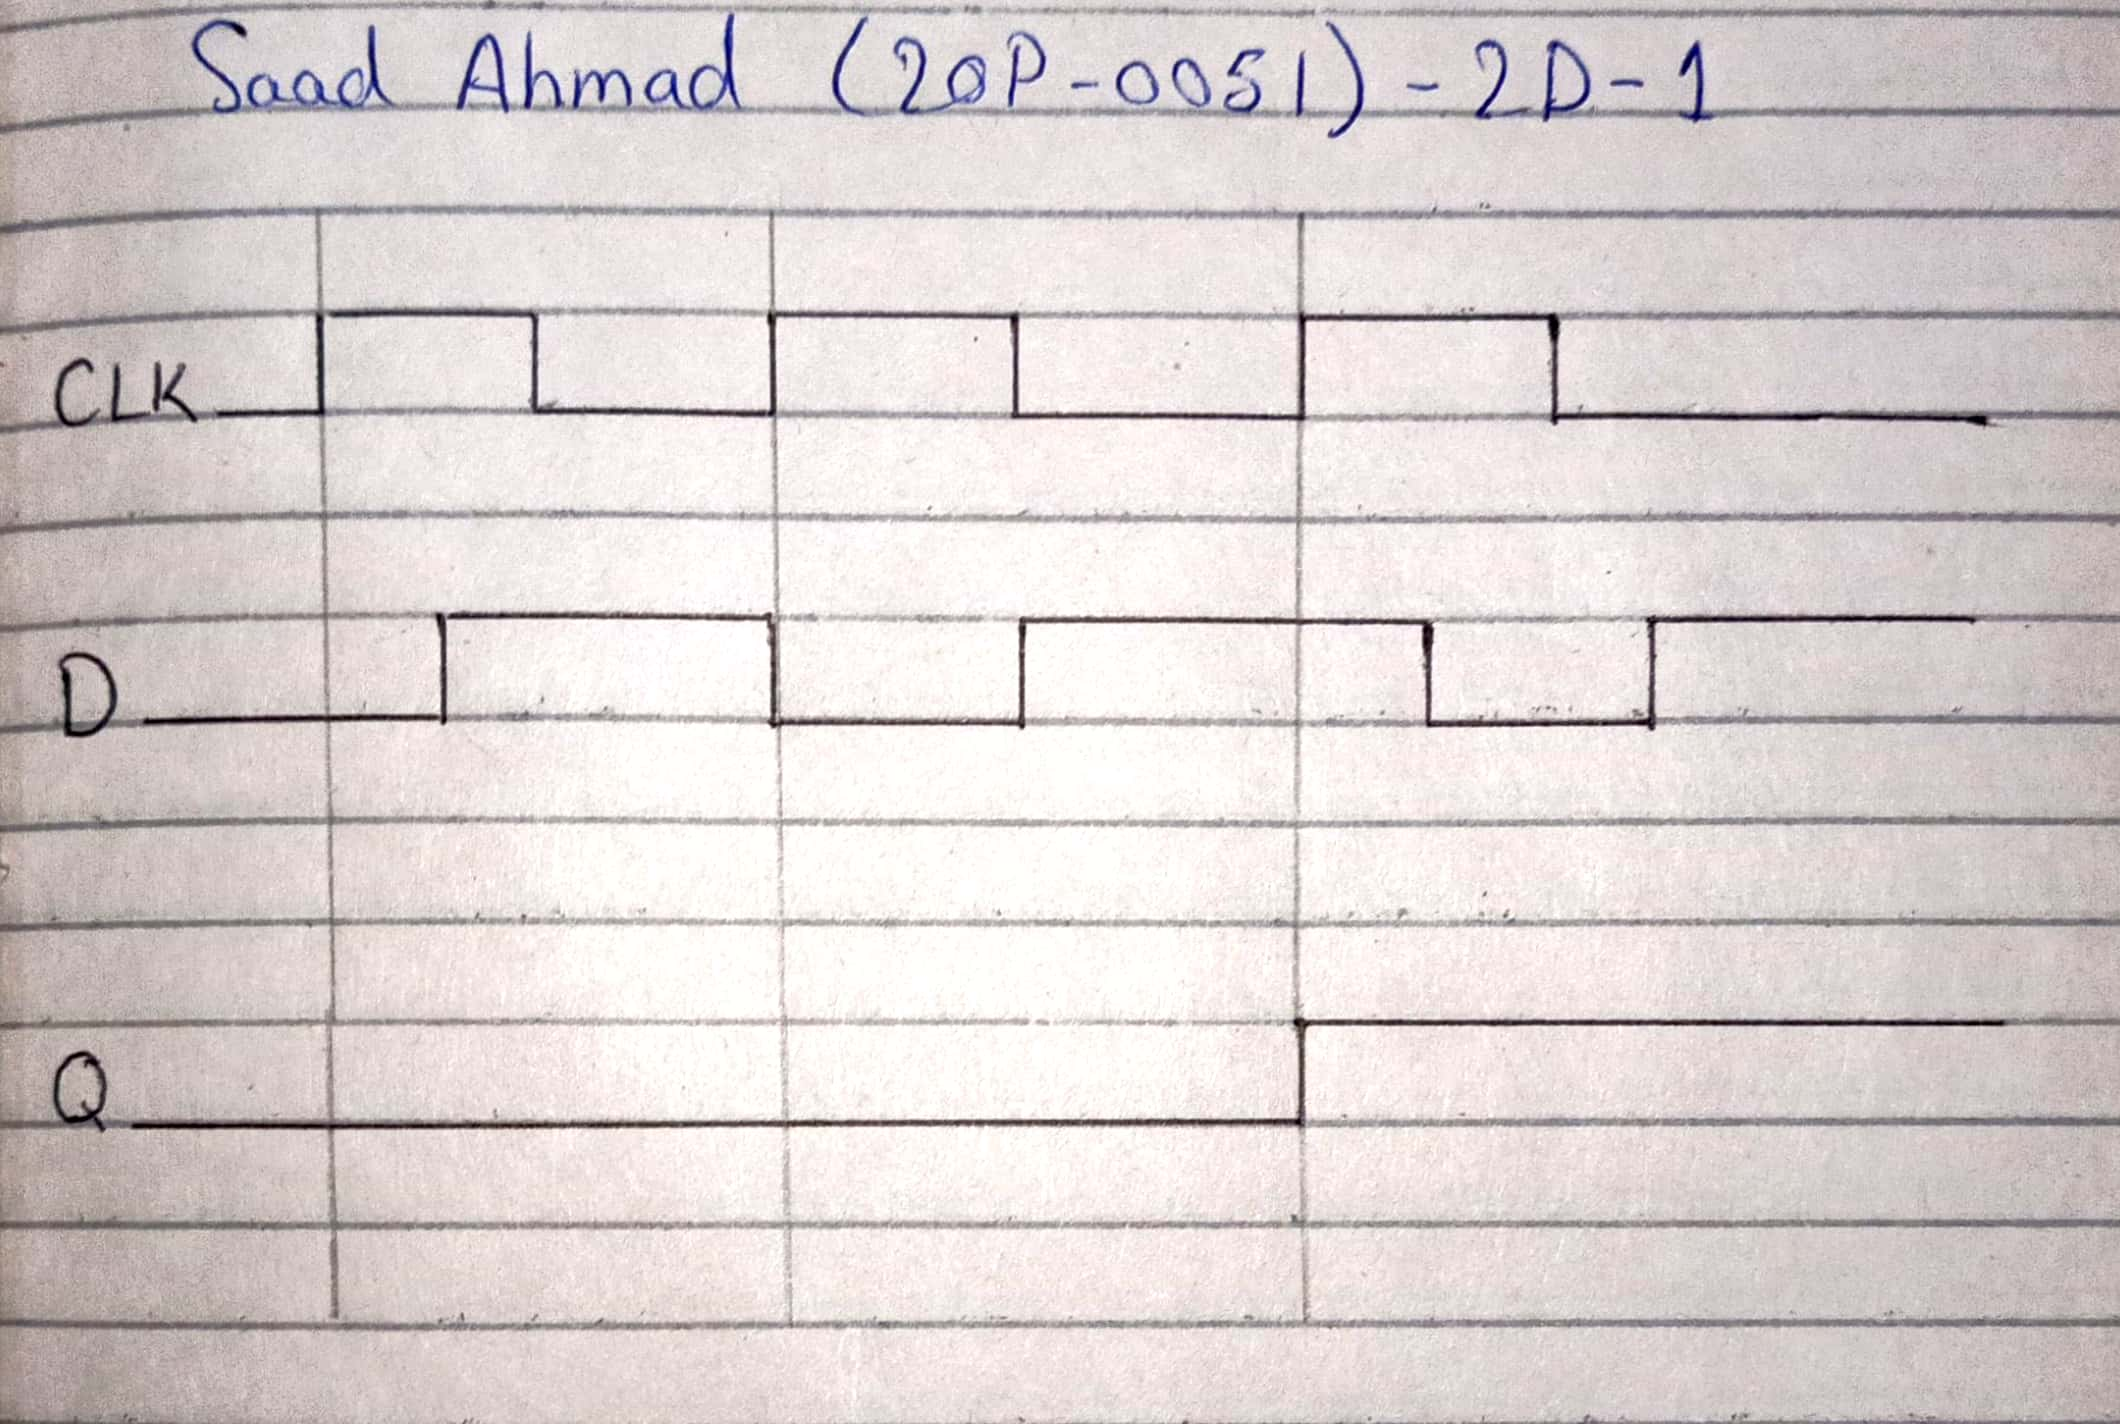 Saad Ahmad (20P-0051) - 2D-1
CLK
D
Q